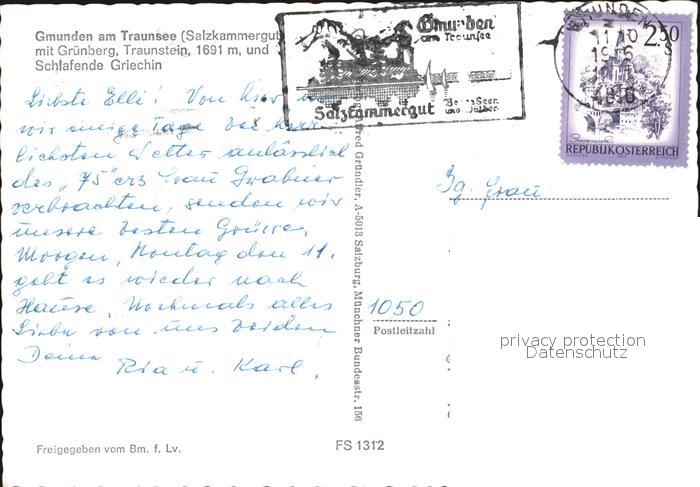 Gmunden am Traunsee (Salzkammergut
mit Grünberg, Traunstein, 1691 m, und
Schlafende Griechin
Gmunden
am Traunsee
Salzkammergut
Berge Seen
GMUNDEN
11 10
4810
2.50
S
REPUBLIK ÖSTERREICH
Liebste Elli! Von hier wo
wir einige Tage bei herr-
lichsten Wetter anlässlich
des „75"ers Frau Grabner
verbrachten, senden wir
unsere besten Grüsse.
Morgen, Montag den 11.
geht es wieder nach
Hause. Nochmals alles
Liebe von uns beiden
Deine
Ria u. Karl.
Gründler, A-5013 Salzburg, Münchner Bundesstr. 156
Frau
1050
Postleitzahl
privacy protection
Datenschutz
Freigegeben vom Bm. f. Lv.
FS 1312